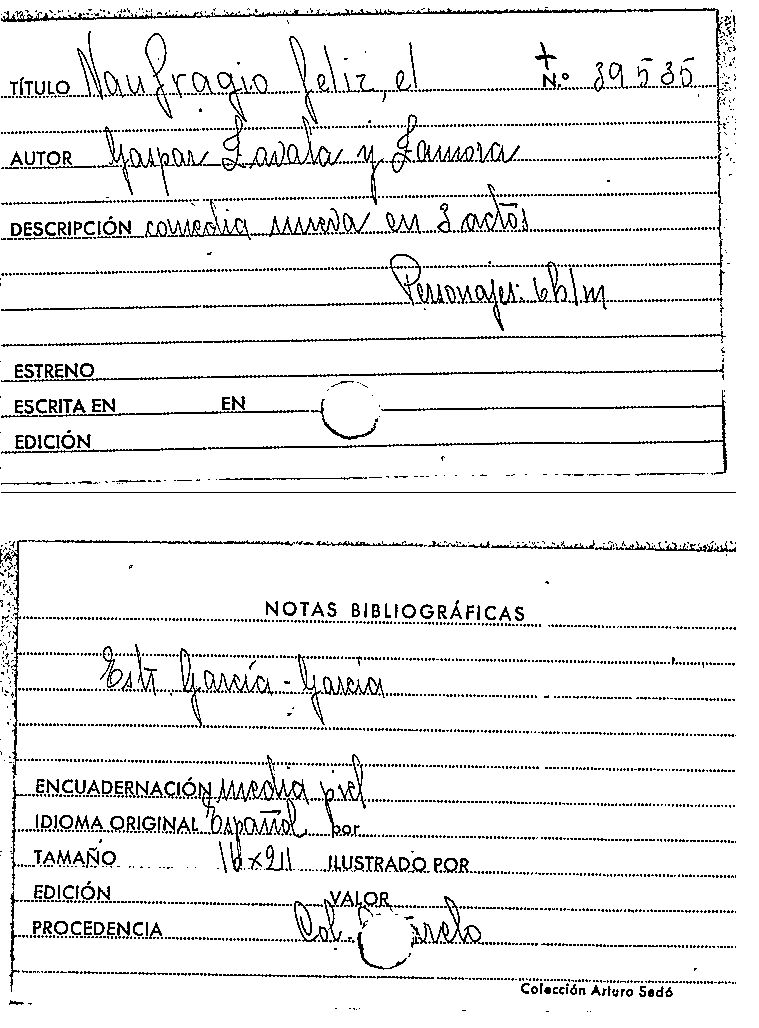 TÍTULO Naufragio feliz, el N.º 39535
AUTOR Gaspar Zavala y Zamora
DESCRIPCIÓN comedia nueva en 3 actos
Personajes: 6h 1m
ESTRENO
ESCRITA EN EN
EDICIÓN
NOTAS BIBLIOGRÁFICAS
Estr García - García
ENCUADERNACIÓN media piel
IDIOMA ORIGINAL Español por
TAMAÑO 16x21 ILUSTRADO POR
EDICIÓN VALOR
PROCEDENCIA Col.
Colección Arturo Sedó